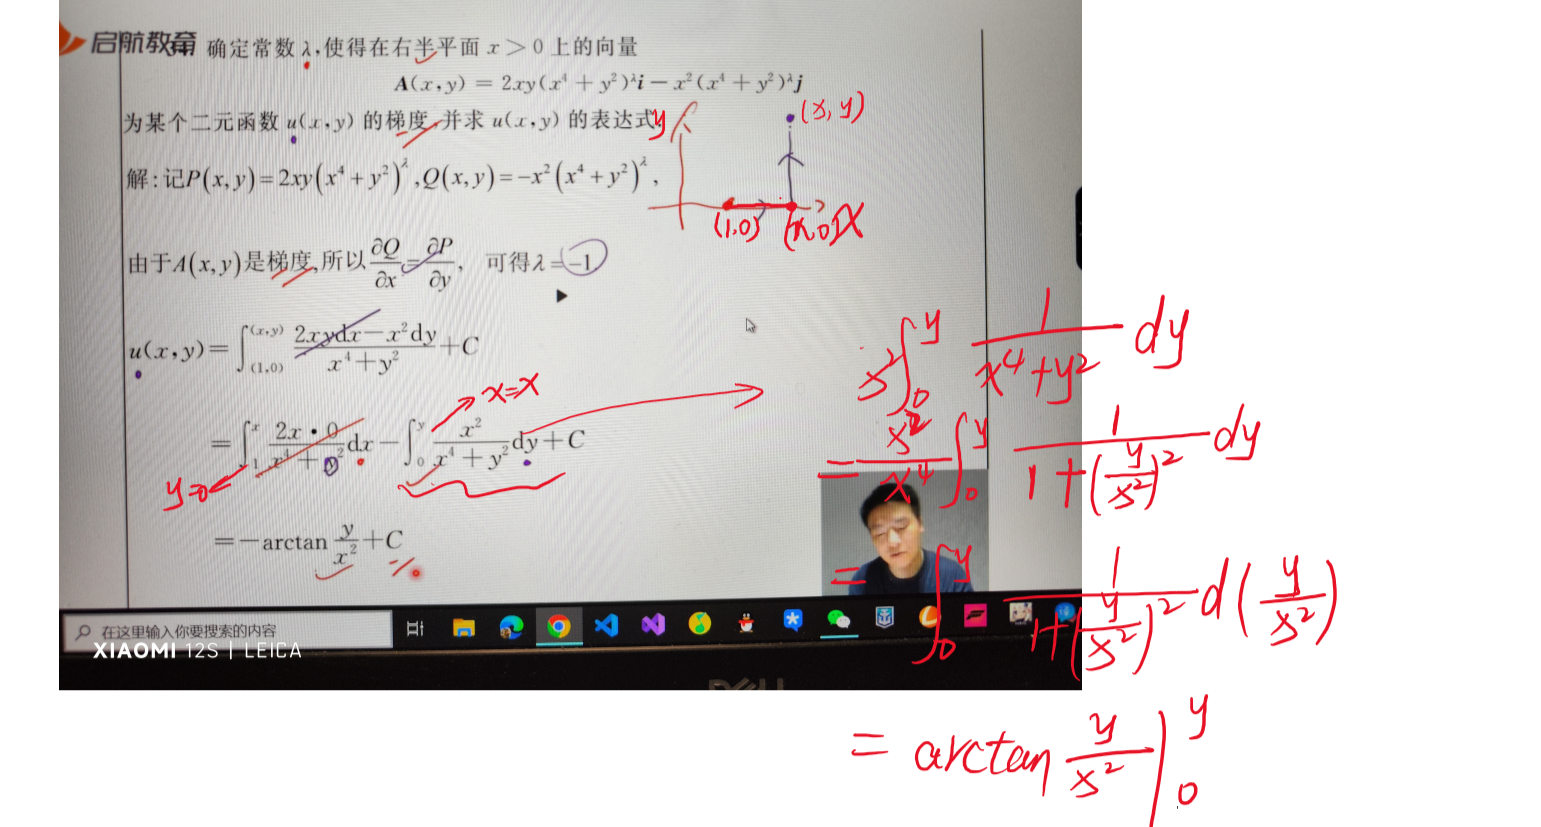 启航教育
确定常数 λ,使得在右半平面 x > 0 上的向量
A(x,y) = 2xy(x⁴ + y²)^λ i − x²(x⁴ + y²)^λ j
为某个二元函数 u(x,y) 的梯度,并求 u(x,y) 的表达式
y
(x, y)
(1,0) (x,0) x
解:记P(x,y)=2xy(x⁴+y²)^λ,Q(x,y)=−x²(x⁴+y²)^λ,
由于A(x,y)是梯度,所以 ∂Q/∂x = ∂P/∂y, 可得λ=−1
u(x,y)=∫_(1,0)^(x,y) (2xydx−x²dy)/(x⁴+y²) +C
x=x
=∫_1^x (2x•0)/(x⁴+y²) dx −∫_0^y x²/(x⁴+y²) dy+C
0
y=0
=−arctan y/x² +C
x² ∫_0^y 1/(x⁴+y²) dy
= x²/x⁴ ∫_0^y 1/(1+(y/x²)²) dy
= ∫_0^y 1/(1+(y/x²)²) d(y/x²)
= arctan y/x² |_0^y
在这里输入你要搜索的内容
XIAOMI 12S | LEICA